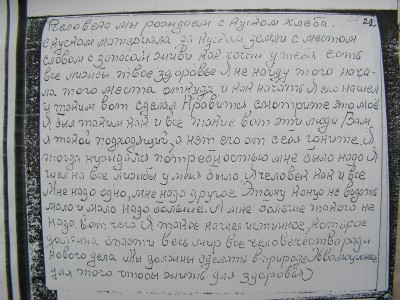 21
Человека мы рождаем с куском хлеба.
с куском материала, за куском земли с местом
словом с запасом живи как хочешь у тебя есть
все лишь твое здоровье я не найду того нача-
ла того места откуда и как начать я его нашел
и таким вот сделал Нравится смотрите это мое
я был таким как и все такие вот эти люди Вам
я такой подходящий, а нет его от себя гоните. я
тогда нуждался потребностью мне было надо я
шел на все у меня было я человек как и все
мне надо одно, мне надо другое этому концу не видать
мало и мало надо больше. А мне больше такого не
надо. Вот чего я такое нашел истинное, которое
должна спасти весь мир все человечество ради
нового дела мы должны сделать в природе Эволюционное
для того чтобы жить для здоровья)